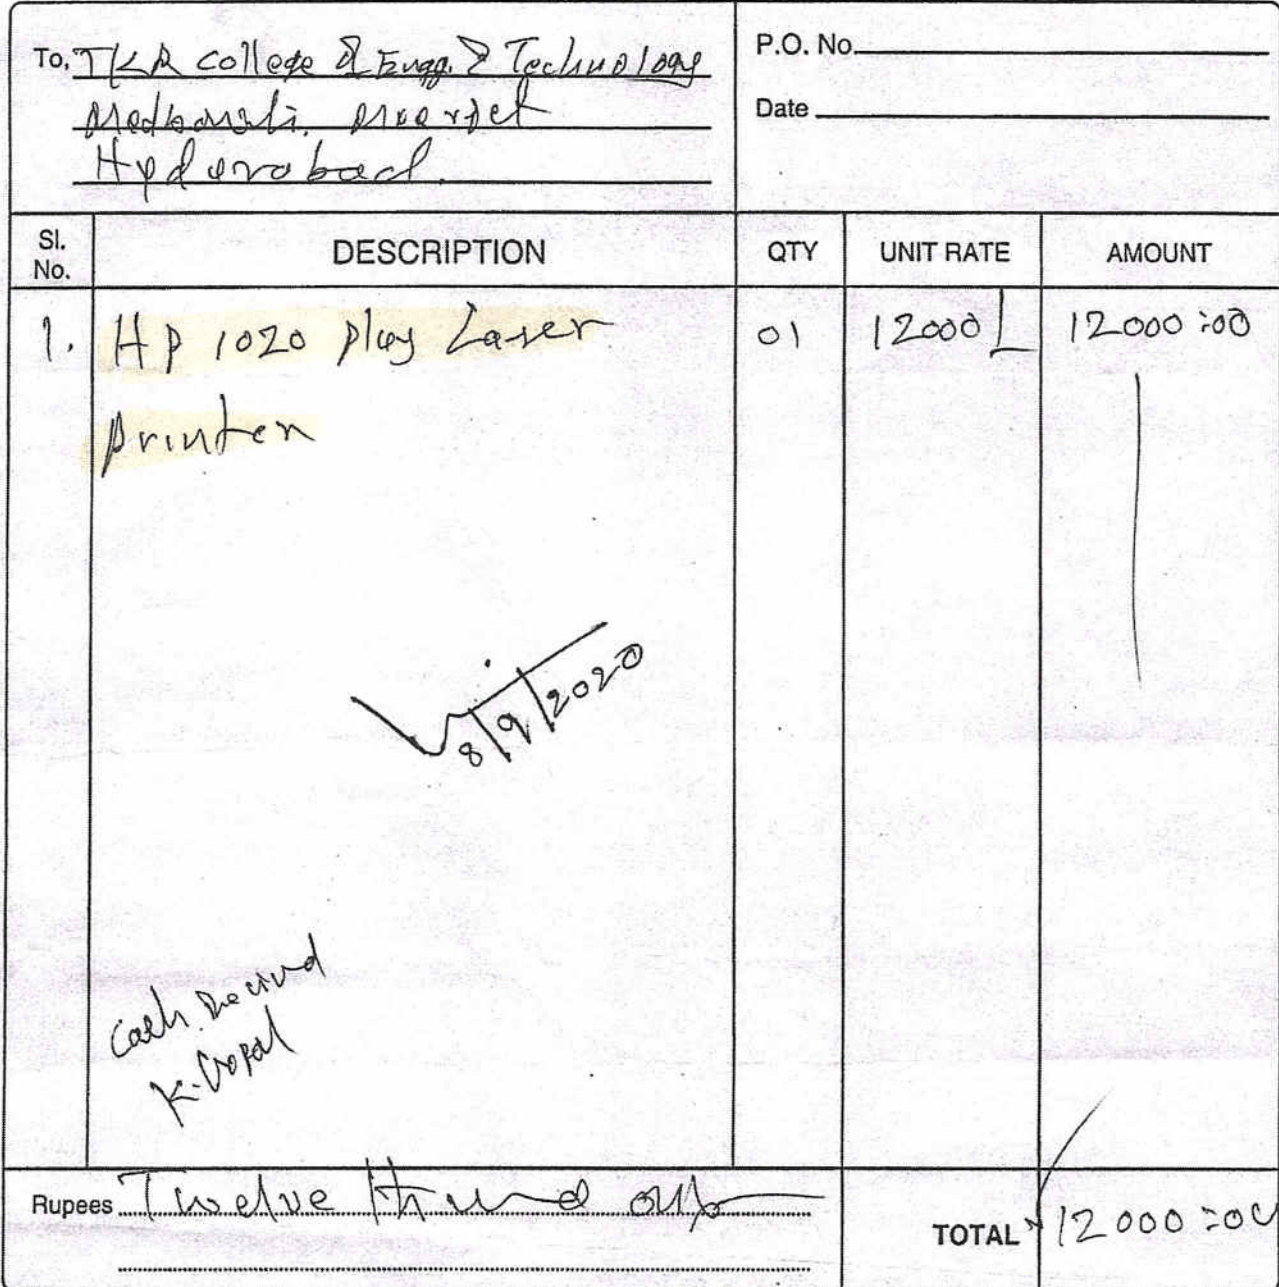 To, TKR College of Engg. & Technology
Medbowli, Meerpet
Hyderabad.
P.O. No.
Date
Sl. No.
DESCRIPTION
QTY
UNIT RATE
AMOUNT
1. HP 1020 plus Laser 01 12000/- 12000:00
printer
8/9/2020
Cash Received
K. Gopal
Rupees Twelve thousand only
TOTAL 12000:00